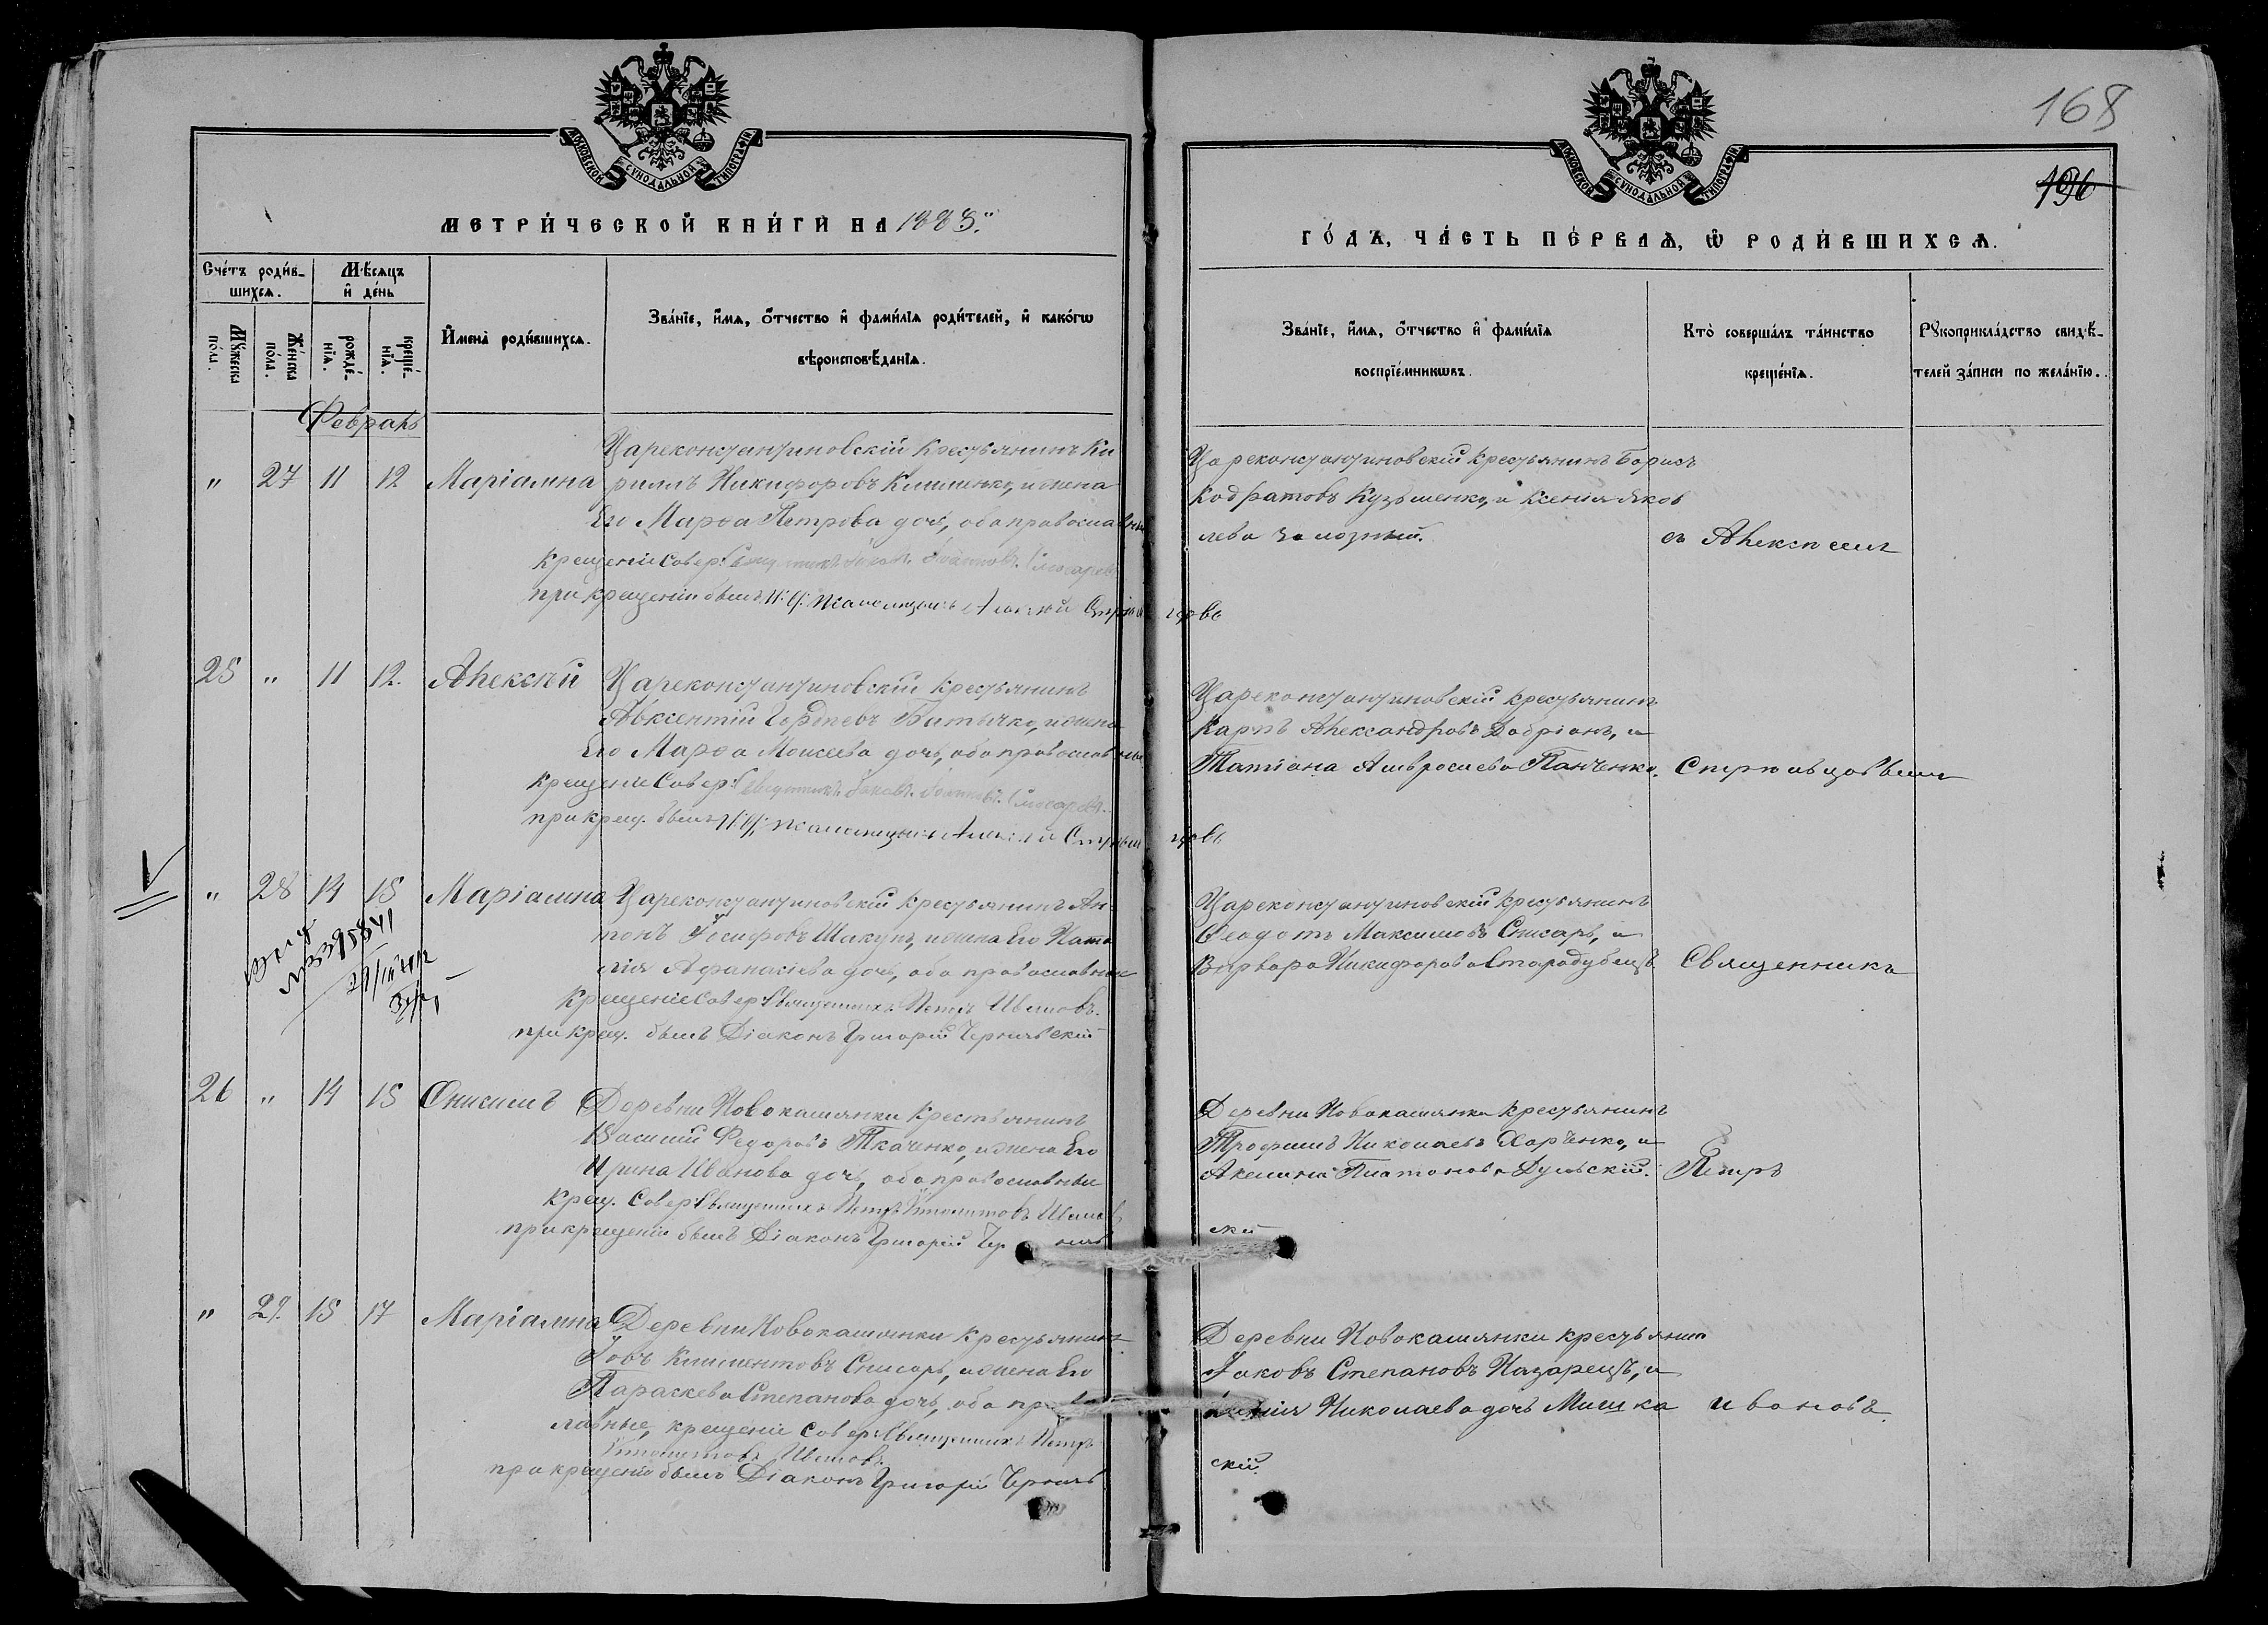 168
196
МОСКОВСКОЙ СѴНОДАЛЬНОЙ ТИПОГРАФІИ
МОСКОВСКОЙ СѴНОДАЛЬНОЙ ТИПОГРАФІИ
МЕТРИ́ЧЕСКОЙ КНИ́ГИ НА 1883.
ГО́ДЪ, ЧА́СТЬ ПЕ́РВАѦ, Ѡ҆ РОДИ́ВШИХСѦ.
Сче́тъ роди́в-
шихсѧ.
Мѣ́сѧцъ
и҆ де́нь
Мꙋ́жеска по́ла.
Же́нска по́ла.
рожде́-
нїѧ.
креще́-
нїѧ.
И҆мена̀ роди́вшихсѧ.
Зва́нїе, и҆́мѧ, ѻ҆́тчество и҆ фами́лїѧ роди́телей, и҆ како́гѡ
вѣроисповѣ́данїѧ.
Зва́нїе, и҆́мѧ, ѻ҆́тчество и҆ фами́лїѧ
воспрїе́мникѡвъ.
Кто̀ соверша́лъ та́инство
креще́нїѧ.
Рꙋкоприкла́дство свидѣ́-
телей за́писи по жела́нїю.
Февраль
" 27 11 12 Маріамна
Цареконстантиновскій крестьянинъ Ки
риллъ Никифоровъ Клименко, и жена
Его Марѳа Петрова дочь, оба православные
Крещеніе Совер: Священникъ
при крещеніи былъ Псаломщикъ Алексѣй
Цареконстантиновскій крестьянинъ Борисъ
Кодратовъ Кузьменко, и Ксенія Яков
лева
съ Алексѣемъ
25 " 11 12. Алексѣй
Цареконстантиновскій крестьянинъ
Авксентій Гордѣевъ Батычко, и жена
Его Марѳа Моисеева дочь, оба православные
Крещеніе Совер: Священникъ
при крещ. былъ Псаломщикъ Алексѣй
Цареконстантиновскій крестьянинъ
Карпъ Александровъ Добріанъ, и
Татіана Амвросиева Панченко.
" 28 14 15 Маріамна
Цареконстантиновскій крестьянинъ Ан-
тонъ Іосифовъ Шакунъ, и жена Его Ната
лія Афанасіева дочь, оба православные
Крещеніе Совер: Священникъ Петръ Ивановъ.
при крещ. былъ Діаконъ Григорій Чернявскій
Цареконстантиновскій крестьянинъ
Ѳеодотъ Максимовъ Снисарь, и
Варвара Никифорова Стародубецъ
Священникъ
№3395841
26 " 14 15 Онисимъ
Деревни Новокаменки крестьянинъ
Василій Федоровъ Ткаченко, и жена Его
Ирина Иванова дочь, оба православные
Крещ. Совер: Священникъ Петръ
при крещеніи былъ Діаконъ Григорій
Деревни Новокаменки крестьянинъ
Трофимъ Николаевъ Харченко, и
Акелина Платонова
Петръ
скій
" 29. 15 17 Маріамна
Деревни Новокаменки крестьянинъ
Іовъ Климентовъ Снисарь, и жена Его
Параскева Степанова дочь, оба правос
лавные, крещеніе Совер: Священникъ Петръ
Ивановъ.
при крещеніи былъ Діаконъ Григорій Чернявъ
Деревни Новокаменки крестьянинъ
Іаковъ Степановъ Назарецъ, и
Николаева дочь Мишка
Ивановъ.
скій.